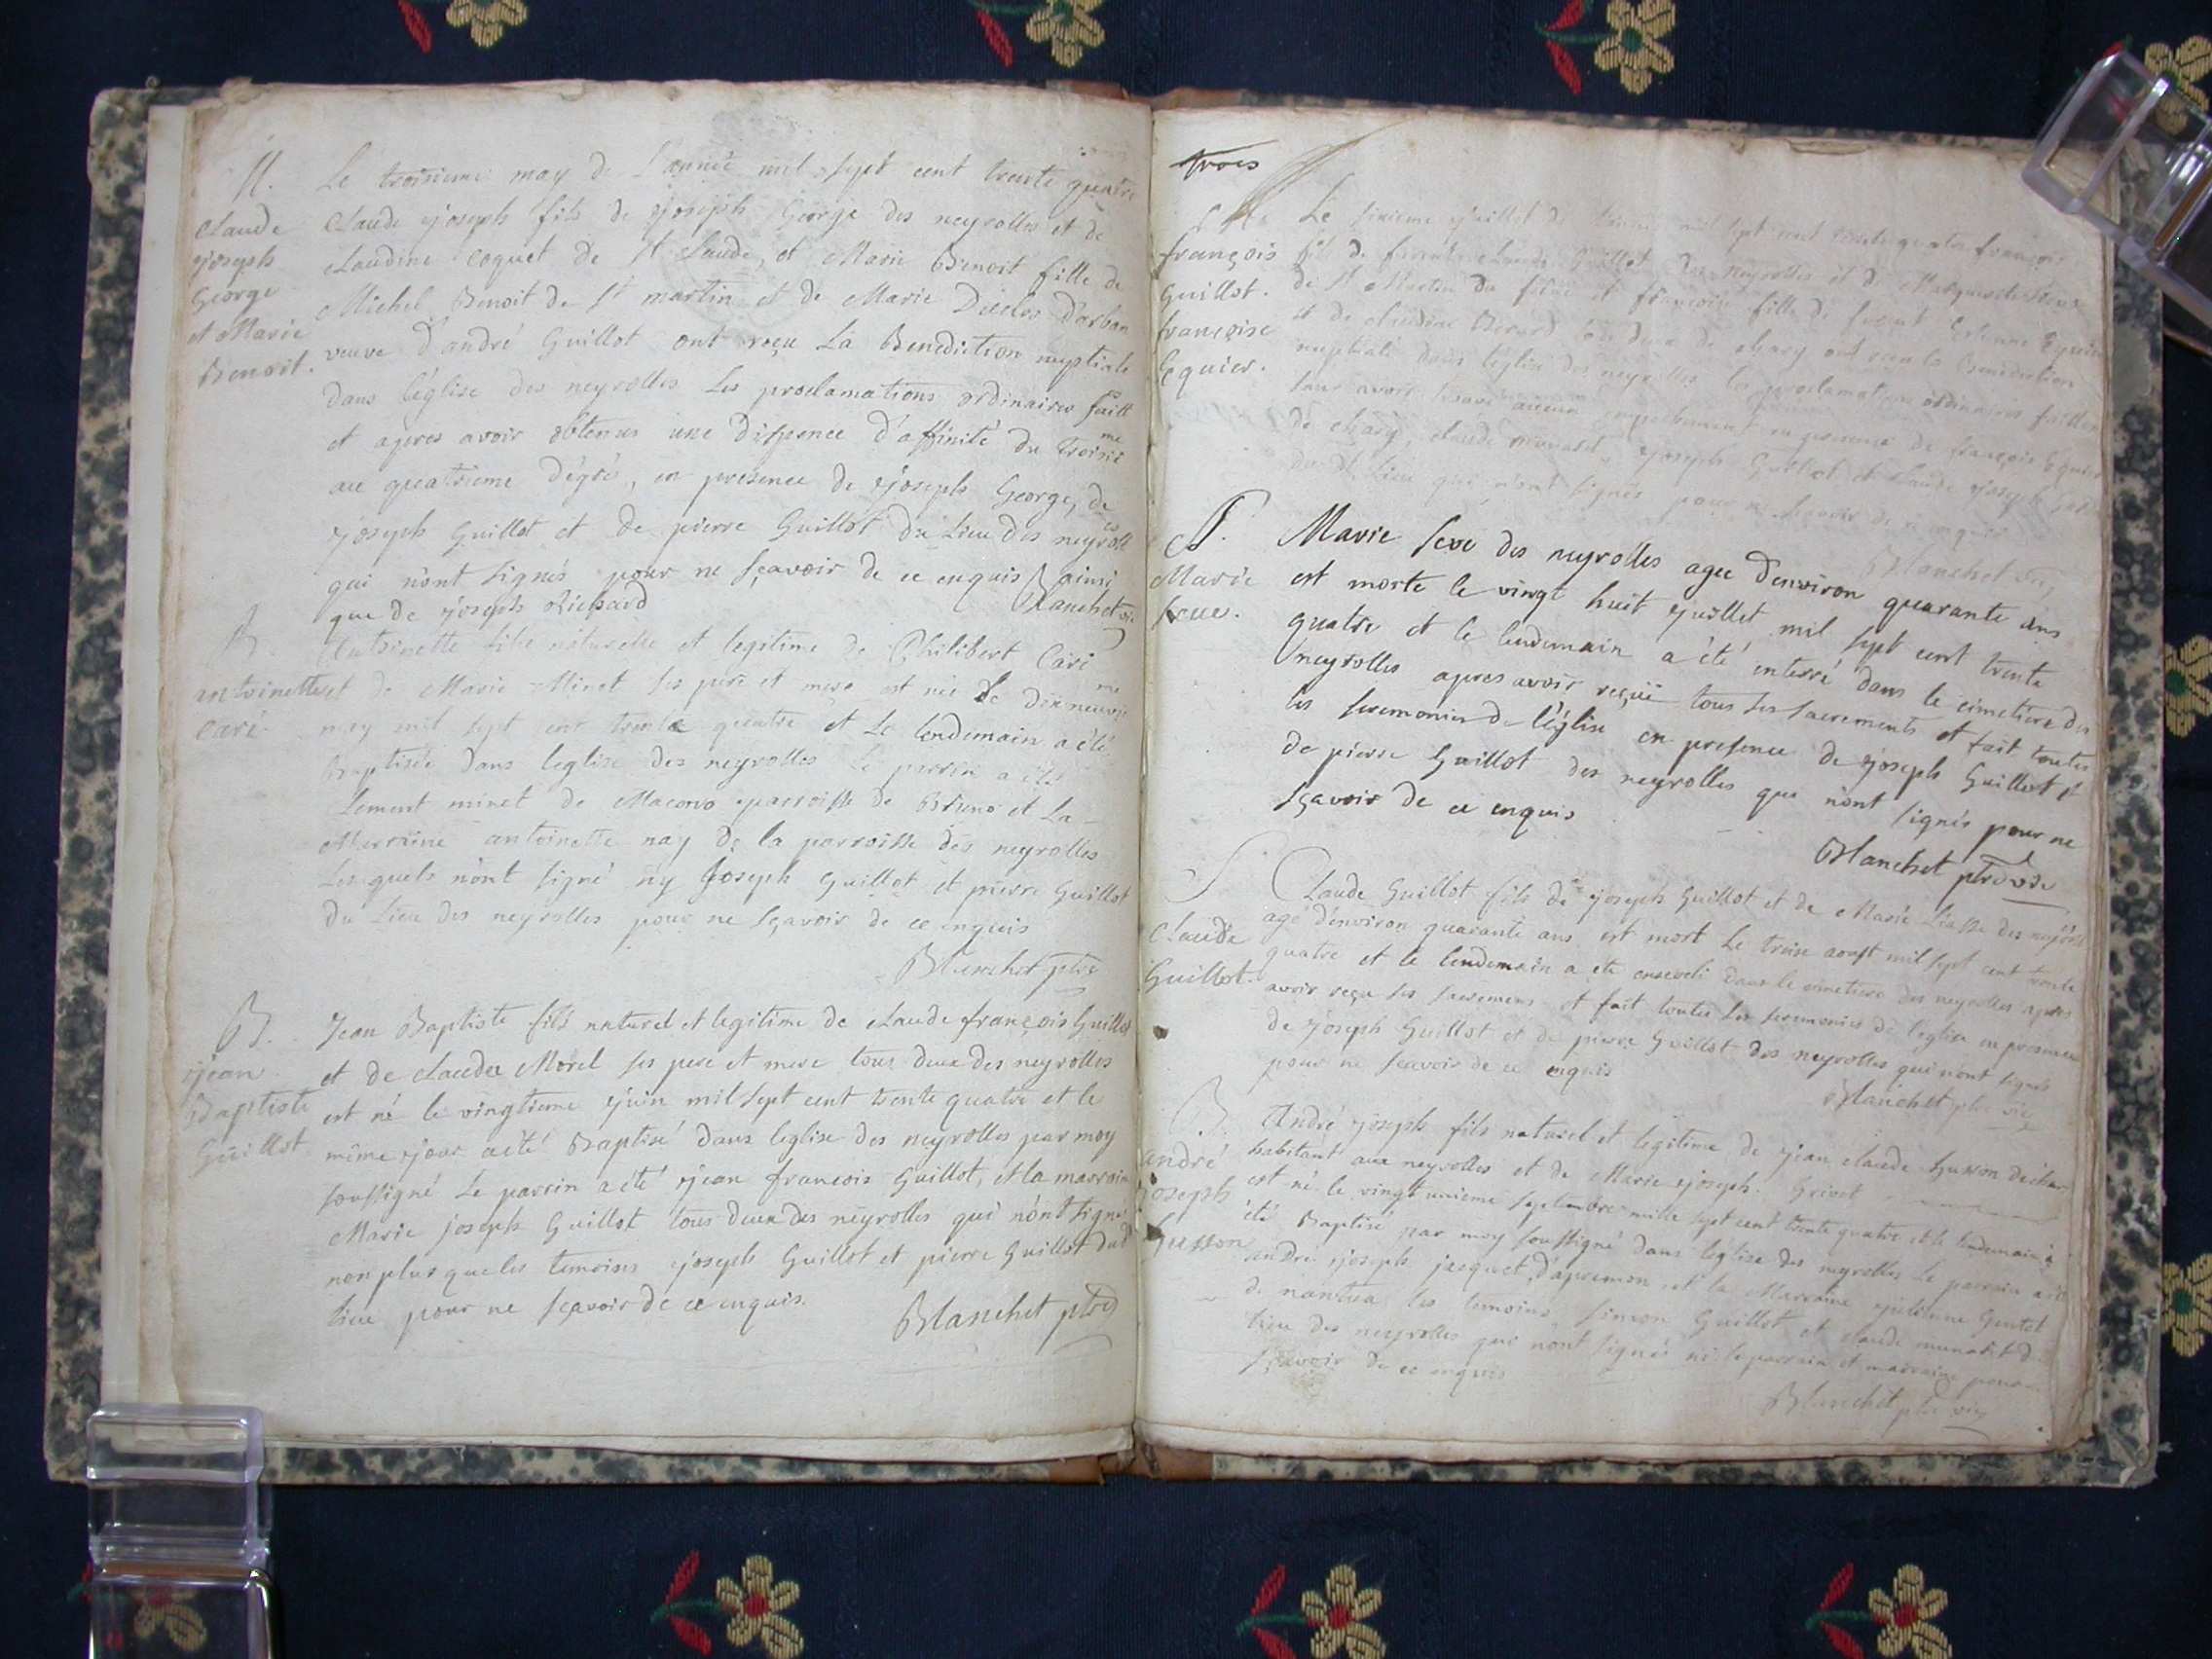 M.
Claude
joseph
George
et Marie
Benoit.
Le troisieme may de l'année mil sept cent trente quatre
Claude joseph fils de joseph George des neyrolles et de
Claudine Coquet de St Claude, et Marie Benoit fille de
Michel Benoit de St martin et de Marie Duclos d'orban
veuve d'andré Guillot ont reçu La Benediction nuptiale
dans l'église des neyrolles Les proclamations ordinaires faitt
et apres avoir obtenus une dispence d'affinité du troisieme
au quatrieme dégré, en présence de joseph George, de
joseph Guillot et de pierre Guillot du Lieu des neyrolles
qui n'ont signés pour ne sçavoir de ce enquis ainsi
que de joseph Richard Blanchet
B.
antoinette
Cari
Antoinette fille naturelle et legitime de Philibert Cari
et de Marie Minet ses pere et mere est née Le dix neuvie
may mil sept cent trente quatre et Le lendemain a été
Baptisée dans leglise des neyrolles Le parrin a été
Lement minet de parroisse de et La
Marraine antoinette nay de la parroisse des neyrolles
Lesquels n'ont signé ny Joseph Guillot et pierre Guillot
du Lieu des neyrolles pour ne sçavoir de ce enquis
Blanchet ptre
B.
jean
Baptiste
Guillot
Jean Baptiste fils naturel et legitime de Claude françois Guillot
et de Claudu Morel ses pere et mere tous deux des neyrolles
est né le vingtieme juin mil sept cent trente quatre et le
même jour a été Baptisé dans leglise des neyrolles par moy
soussigné Le parrin a été jean francois Guillot, et la marraine
Marie joseph Guillot tous deux des neyrolles qui n'ont signé
non plus que les temoins joseph Guillot et pierre Guillot dud
lieu pour ne sçavoir de ce enquis.
Blanchet ptre
trois
françois
Guillot.
françoise
Equier.
Le sixieme juillet de l'année mil sept cent trente quatre françois
fils de Claude Guillot des neyrolles et de Marguerite
de St Martin du et françoise fille de Etienne Equier
et de claudine Berard tous deux de chary ont reçu la Benediction
nuptiale dans l'église des neyrolles les proclamations ordinaires faittes
sans avoir trouvé aucun empechement en presence de françois Equier
de chary, claude munaret, joseph Guillot et claude joseph
dud. Lieu qui n'ont signés pour ne sçavoir de ce enquis
Blanchet
S.
Marie
seve.
Marie seve des neyrolles agee d'environ quarante ans
est morte le vingt huit juillet mil sept cent trente
quatre et le lendemain a été enterré dans le cimetiere des
neyrolles apres avoir reçuë tous ses sacrements et fait toutes
les seremonies de l'église en presence de joseph Guillot et
de pierre Guillot des neyrolles que n'ont signés pour ne
sçavoir de ce enquis
Blanchet ptre vic
S
Claude
Guillot.
Claude Guillot fils de joseph Guillot et de Marie des neyrolles
agé d'environ quarante ans est mort Le treise aoust mil sept cent trente
quatre et le lendemain a eté enseveli dans le cimetiere des neyrolles apres
avoir reçu ses sacremens et fait toutes les seremonies de l'eglise en presence
de joseph Guillot et de pierre Guillot des neyrolles qui n'ont signés
pour ne scavoir de ce enquis
Blanchet ptre vic
B.
andré
joseph
husson
André joseph fils naturel et legitime de jean claude husson de
habitant aux neyrolles et de Marie joseph Grivet
est né le vingt unieme septembre mille sept cent trente quatre et le lendemain a
été Baptisé par moy soussigné dans l'église des neyrolles Le parrain a été
andré joseph jacquet d'apremon et la Marraine
de nantua les temoins simeon Guillot et claude munaret du
lieu des neyrolles qui n'ont signés ni le parrain et marraine pour ne
sçavoir de ce enquis
Blanchet ptre vic